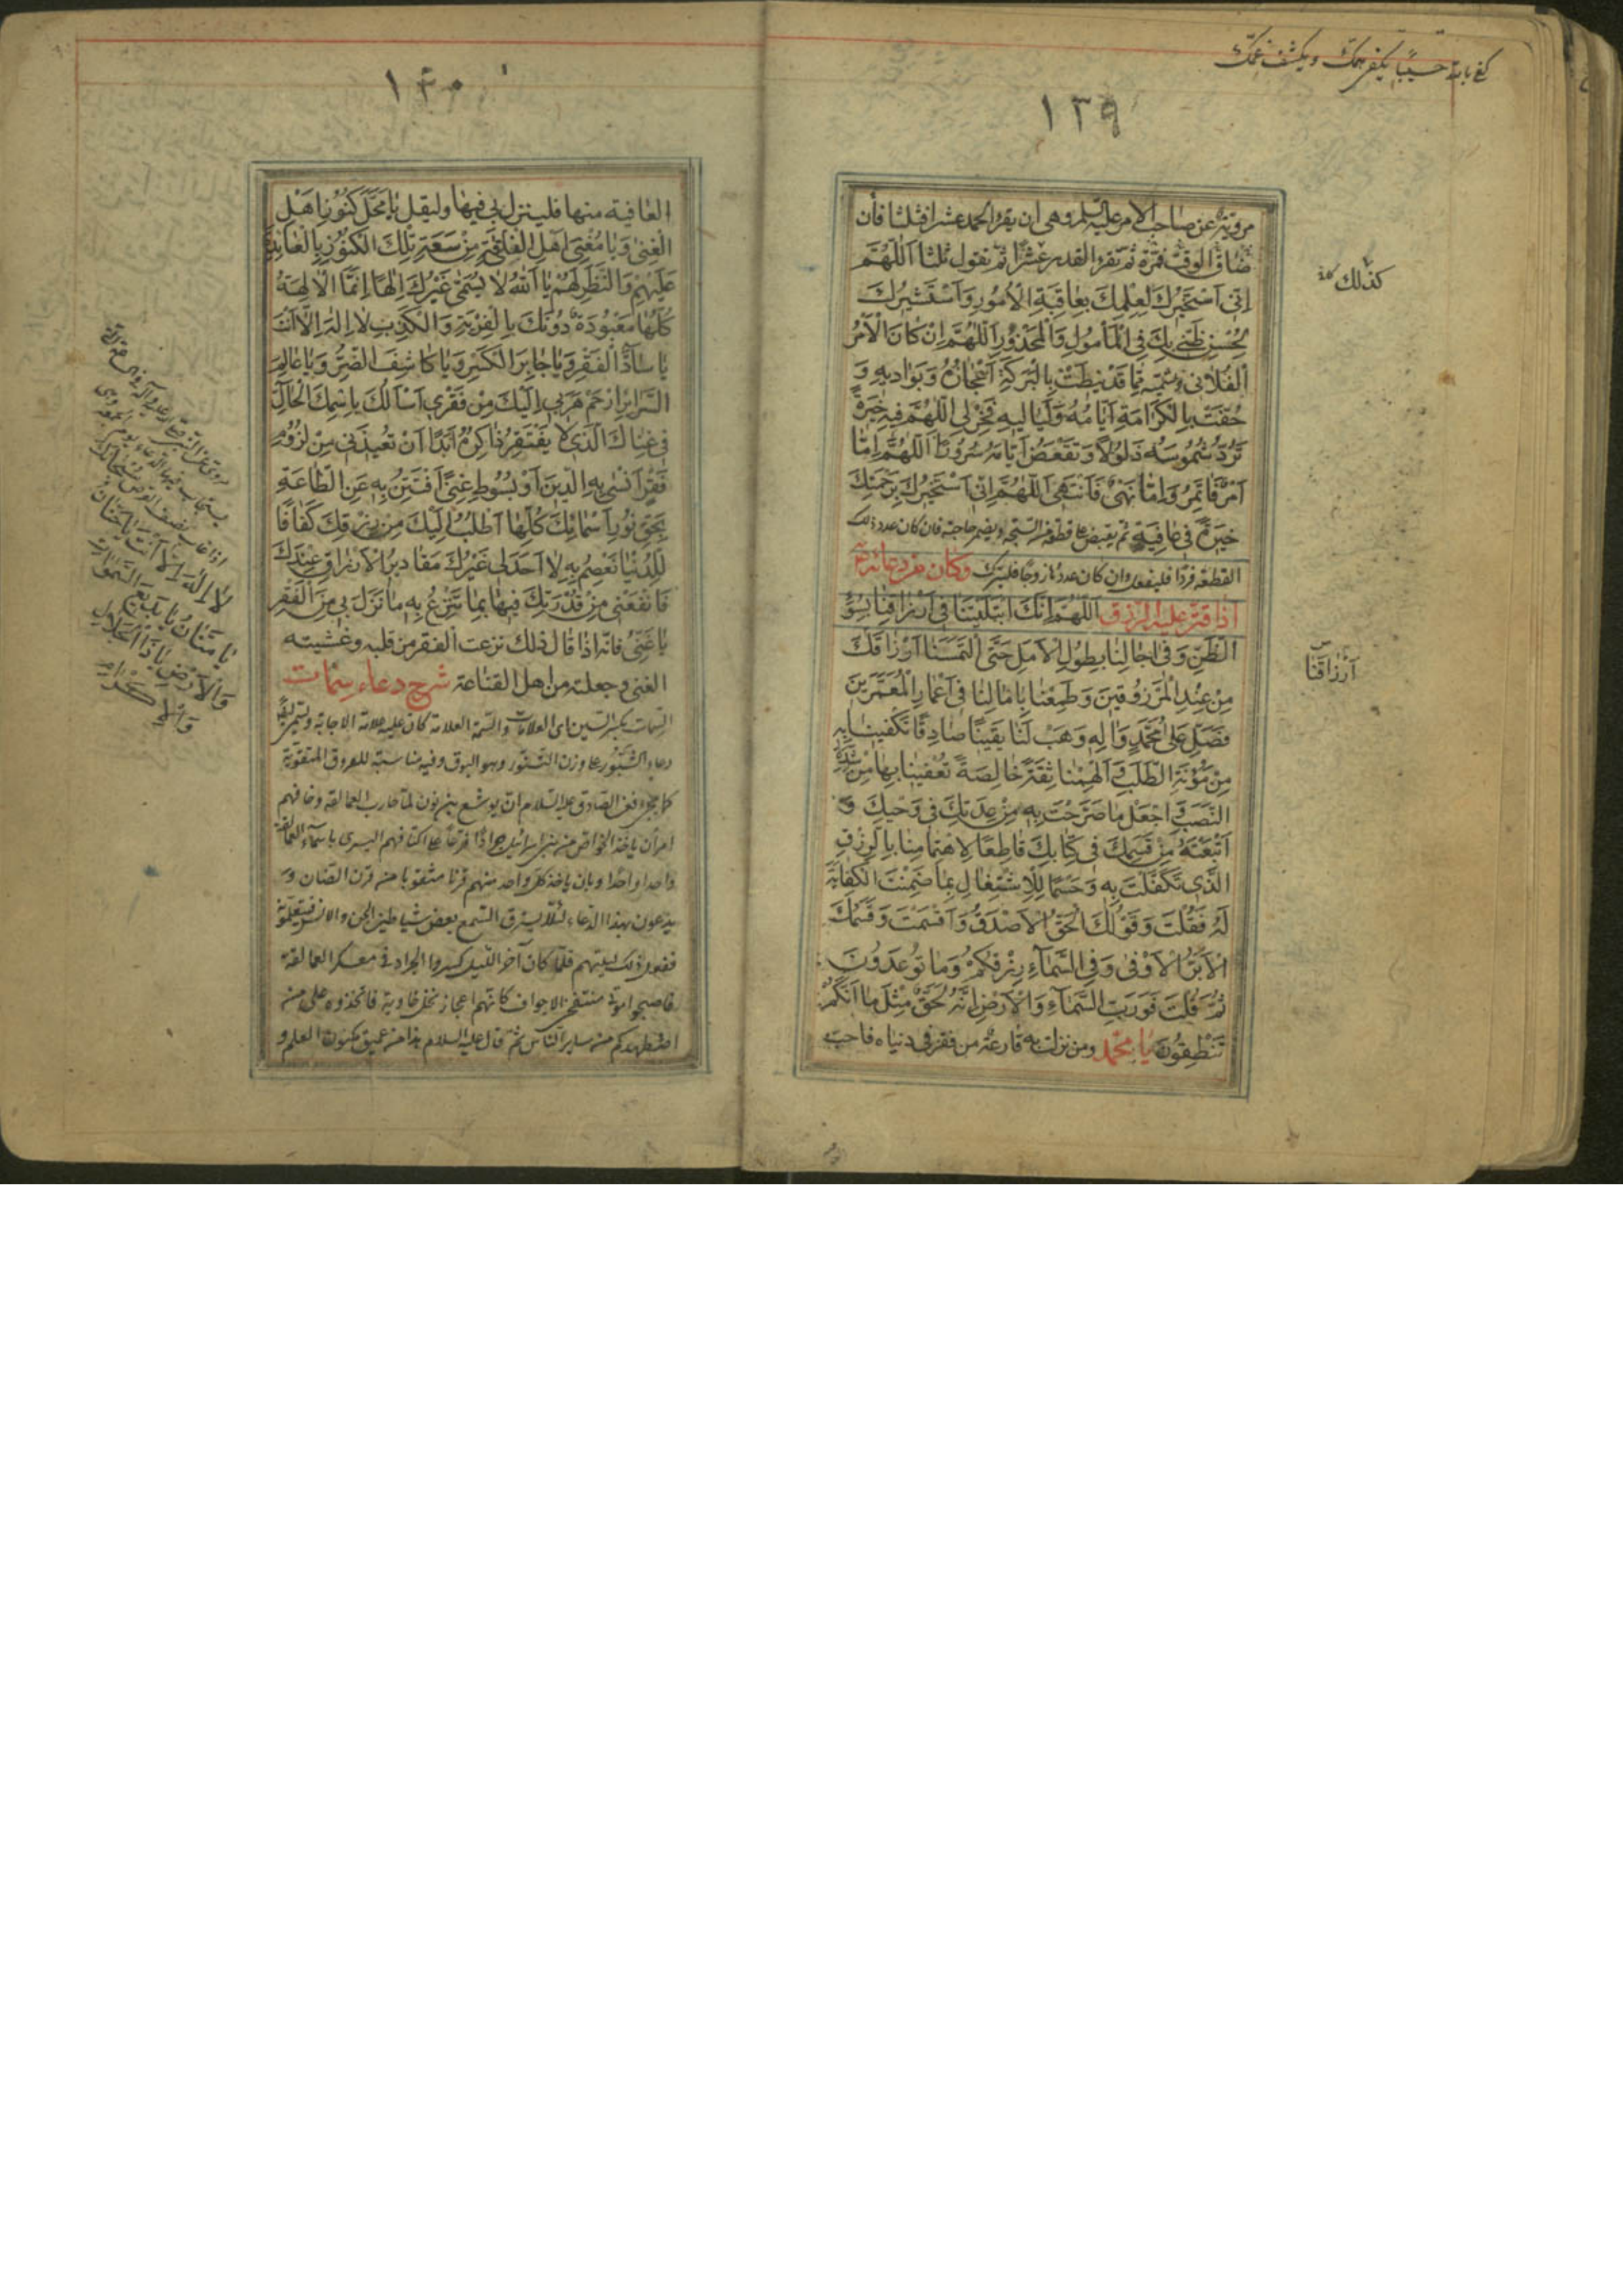 كفى بالله حسيبا يكفى همك ويكشف غمك
١٣٩
مروية عن صاحب الامر عليه السلم وهى ان يقرء الحمد عشرا فثلثا فأن
ضاق الوقت فمرة ثم تقرء القدر عشرًا ثم تقول ثلثا اَللّٰهُمَّ
اِنّى اَسْتَخيرُكَ لِعِلْمِكَ بِعاقِبَةِ الْاُمُورِ وَاَسْتَشيرُكَ
لِحُسْنِ ظَنّى بِكَ فِى الْمَأْمُولِ وَالْمَحْذُورِ اَللّٰهُمَّ اِنْ كانَ الْاَمْرُ
الْفُلانى وتسميه مِمّا قَدْ نيطَتْ بِالْبَرَكَةِ اَعْجازُهُ وَبَواديهِ وَ
حُفَّتْ بِالْكَرامَةِ اَيّامُهُ وَلَياليهِ فَخِرْ لى اللّٰهُمَّ فيهِ خِيَرَةً
تَرُدُّ شُمُوسَهُ ذَلُولًا وَتَقْعَضُ اَيّامَهُ سُرُورًا اَللّٰهُمَّ اِمّا
اَمْرٌ فَاْتَمِرُ وَاِمّا نَهْىٌ فَاَنْتَهى اَللّٰهُمَّ اِنّى اَسْتَخيرُكَ بِرَحْمَتِكَ
خِيَرَةً فى عافِيَةٍ ثم يقبض على قطعة من السبحة ويضمر حاجته فان كان عدد ذلك
القطعة فردًا فليفعل وان كان عددها زوجًا فليترك وكان من دعائه
اذا قتر عليه الرزق اَللّٰهُمَّ اِنَّكَ ابْتَلَيْتَنا فى اَرْزاقِنا بِسُوءِ
الظَّنِّ وَفى اجالِنا بِطُولِ الْاَمَلِ حَتَّى الْتَمَسْنا اَرْزاقَكَ
مِنْ عِنْدِ الْمَرْزُوقينَ وَطَمِعْنا بِامالِنا فى اَعْمارِ الْمُعَمَّرينَ
فَصَلِّ عَلى مُحَمَّدٍ وَالِهِ وَهَبْ لَنا يَقينًا صادِقًا تَكْفينا بِهِ
مِنْ مَؤُنَةِ الطَّلَبِ وَاَلْهِمْنا ثِقَةً خالِصَةً تُعْفينا بِها مِنْ شِدَّةِ
النَّصَبِ وَاجْعَلْ ما صَرَّحْتَ بِهِ مِنْ عِدَتِكَ فى وَحْيِكَ وَ
اَتْبَعْتَهُ مِنْ قَسَمِكَ فى كِتابِكَ قاطِعًا لِاهْتِمامِنا بِالرِّزْقِ
الَّذى تَكَفَّلْتَ بِهِ وَحَسْمًا لِلْاِشْتِغالِ بِما ضَمِنْتَ الْكِفايَةَ
لَهُ فَقُلْتَ وَقَوْلُكَ الْحَقُّ الْاَصْدَقُ وَاَقْسَمْتَ وَقَسَمُكَ
الْاَبَرُّ الْاَوْفى وَفِى السَّمآءِ رِزْقُكُمْ وَما تُوعَدُونَ
ثُمَّ قُلْتَ فَوَرَبِّ السَّمآءِ وَالْاَرْضِ اِنَّهُ لَحَقٌّ مِثْلَ ما اَنَّكُمْ
تَنْطِقُونَ يا محمد ومن نزلت به قارعة من فقر فى دنياه فاحب
كذلك
اَرْزاقَنا
١٣٠
العافية منها فلينزل بى فيها وليقل يا مَحَلَّ كُنُوزِ اَهْلِ
الْغِنى وَيا مُغْنِىَ اَهْلِ الْفاقَةِ مِنْ سَعَةِ تِلْكَ الْكُنُوزِ بِالْعائِدَةِ
عَلَيْهِمْ وَالنَّظَرِ لَهُمْ يا اَللّٰهُ لا يُسَمّى غَيْرُكَ اِلٰهًا اِنَّمَا الْالِهَةُ
كُلُّها مَعْبُودَةٌ دُونَكَ بِالْفِرْيَةِ وَالْكَذِبِ لا اِلٰهَ اِلّا اَنْتَ
يا سادَّ الْفَقْرِ وَيا جابِرَ الْكَسْرِ وَيا كاشِفَ الضُّرِّ وَيا عالِمَ
السَّرائِرِ ارْحَمْ هَرَبى اِلَيْكَ مِنْ فَقْرى اَسْاَلُكَ بِاسْمِكَ الْحالِّ
فى غِناكَ الَّذى لا يَفْتَقِرُ ذاكِرُهُ اَبَدًا اَنْ تُعيذَنى مِنْ لُزُومِ
فَقْرٍ اَنْسى بِهِ الدّينَ اَوْ بُسُوطِ غِنىً اَفْتَتِنُ بِهِ عَنِ الطّاعَةِ
بِحَقِّ نُورِ اَسْمائِكَ كُلِّها اَطْلُبُ اِلَيْكَ مِنْ رِزْقِكَ كَفافًا
لِلدُّنْيا تَعْصِمُ بِهِ لا اَحَدَ لى غَيْرُكَ مَقاديرُ الْاَرْزاقِ عِنْدَكَ
فَانْفَعْنى مِنْ قُدْرَتِكَ فيها بِما تَنْزِعُ بِهِ ما نَزَلَ بى مِنَ الْفَقْرِ
يا غَنِىُّ فانه اذا قال ذلك نزعت الفقر من قلبه وغشيته
الغنى وجعلته من اهل القناعة شرح دعاء سمات
السمات بكسر السين اى العلامات والسمة العلامة كان عليه علامة الاجابة ويسمى ايضًا
دعاء الشبّور على وزن التنّور وهو البوق وفيه مناسبة للقرون المثقوبة
كما يجئ فعن الصادق عليه السلام ان يوشع بن نون لما حارب العمالقة وخافهم
امر ان ياخذ الخواص من بنى اسرائيل جرارًا فرغًا على اكتافهم اليسرى باسماء العمالقة
واحدا واحدًا وبان ياخذ كل واحد منهم قرنا مثقوبا من قرن الضان و
يدعون بهذا الدعاء لئلا يسترق السمع بعض شياطين الجن والانس فيتعلمونه
ففعل ذلك ليلتهم فلما كان آخر الليل كسروا الجرار فى معسكر العمالقة
فاصبحوا موتى منتفخى الاجواف كانهم اعجاز نخل خاوية فاتخذوه على من
اضطهدكم من ساير الناس ثم قال عليه السلام هذا من عميق مكنون العلم و
يستجاب فيها الدعاء يوم الجمعة
اذا غاب نصف القرص سُبْحانَكَ
لا اِلٰهَ اِلّا اَنْتَ يا حَنّانُ
يا مَنّانُ يا بَديعَ السَّمٰواتِ
وَالْاَرْضِ يا ذَا الْجَلالِ
وَالْاِكْرامِ